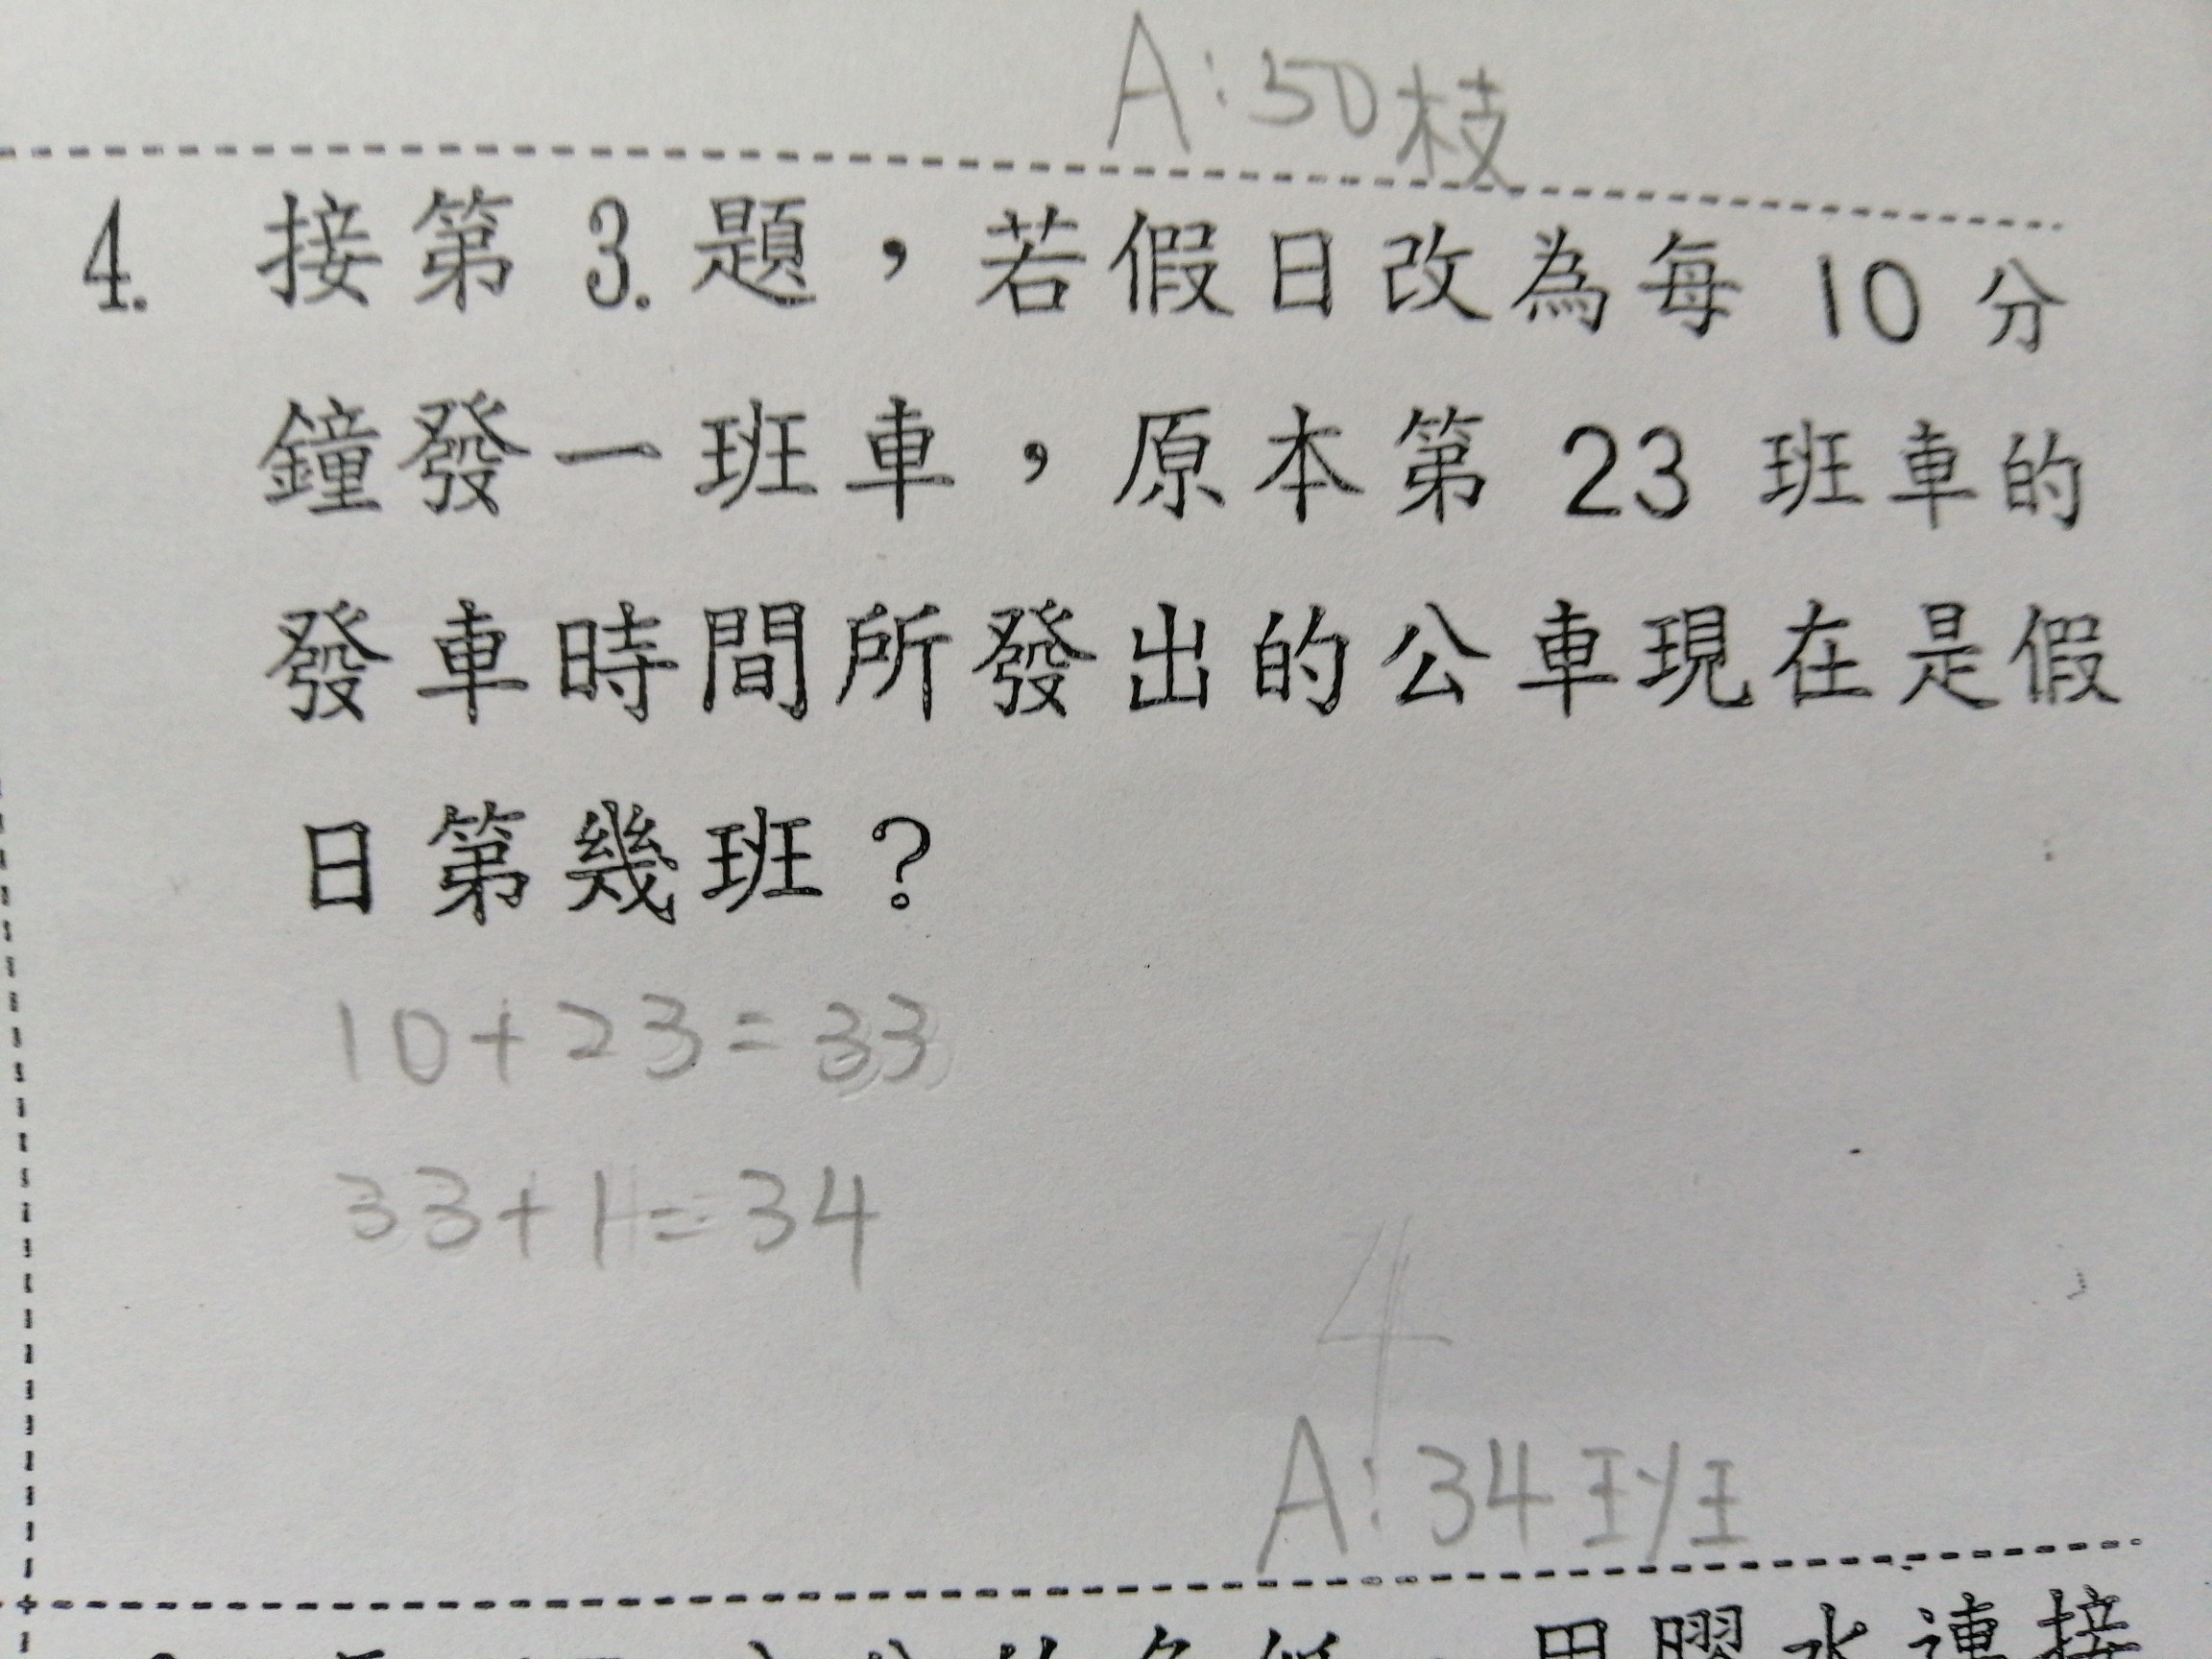 A:50枝
4. 接第3.題，若假日改為每10分
鐘發一班車，原本第23班車的
發車時間所發出的公車現在是假
日第幾班？
10+23=33
33+1=34
4
A:34班
用膠水連接